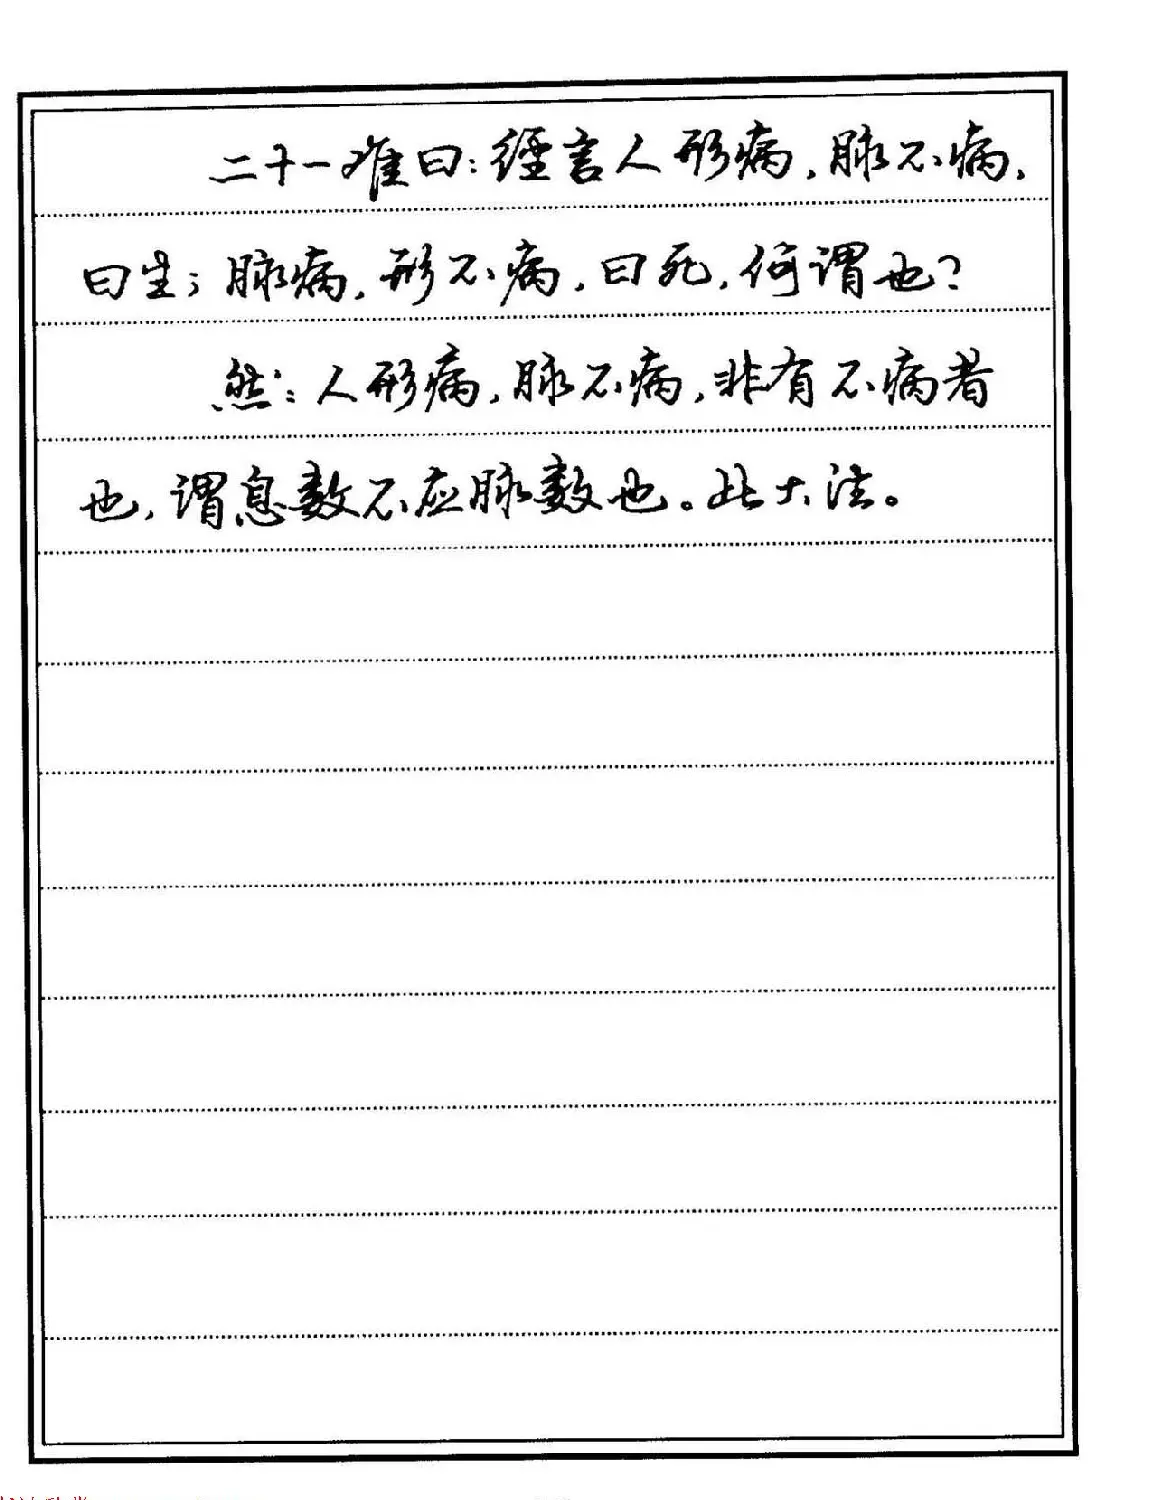 二十一难曰：经言人形病，脉不病，
曰生；脉病，形不病，曰死，何谓也？
然：人形病，脉不病，非有不病者
也，谓息数不应脉数也。此大法。